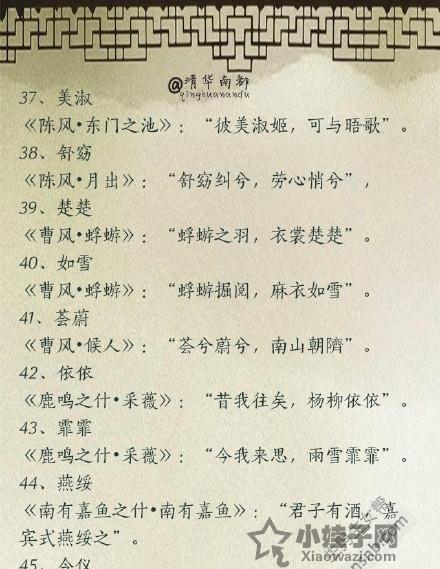 @清华南都
qinghuanandu
37、美淑
《陈风•东门之池》：“彼美淑姬，可与晤歌”。
38、舒窈
《陈风•月出》：“舒窈纠兮，劳心悄兮”，
39、楚楚
《曹风•蜉蝣》：“蜉蝣之羽，衣裳楚楚”。
40、如雪
《曹风•蜉蝣》：“蜉蝣掘阅，麻衣如雪”。
41、荟蔚
《曹风•候人》：“荟兮蔚兮，南山朝隮”。
42、依依
《鹿鸣之什•采薇》：“昔我往矣，杨柳依依”。
43、霏霏
《鹿鸣之什•采薇》：“今我来思，雨雪霏霏”。
44、燕绥
《南有嘉鱼之什•南有嘉鱼》：“君子有酒，嘉
宾式燕绥之”。
45、令仪
小娃子网
Xiaowazi.com